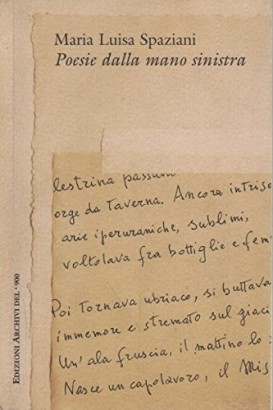 Maria Luisa Spaziani
Poesie dalla mano sinistra
lestrina passava
orge da taverna. Ancora intriso
arie iperuraniche, sublimi,
voltolava fra bottiglie e fem
Poi tornava ubriaco, si buttava
immemore e stremato sul giaci
Un'ala fruscia, il mattino lo
Nasce un capolavoro, il Mis
EDIZIONI ARCHIVI DEL '900